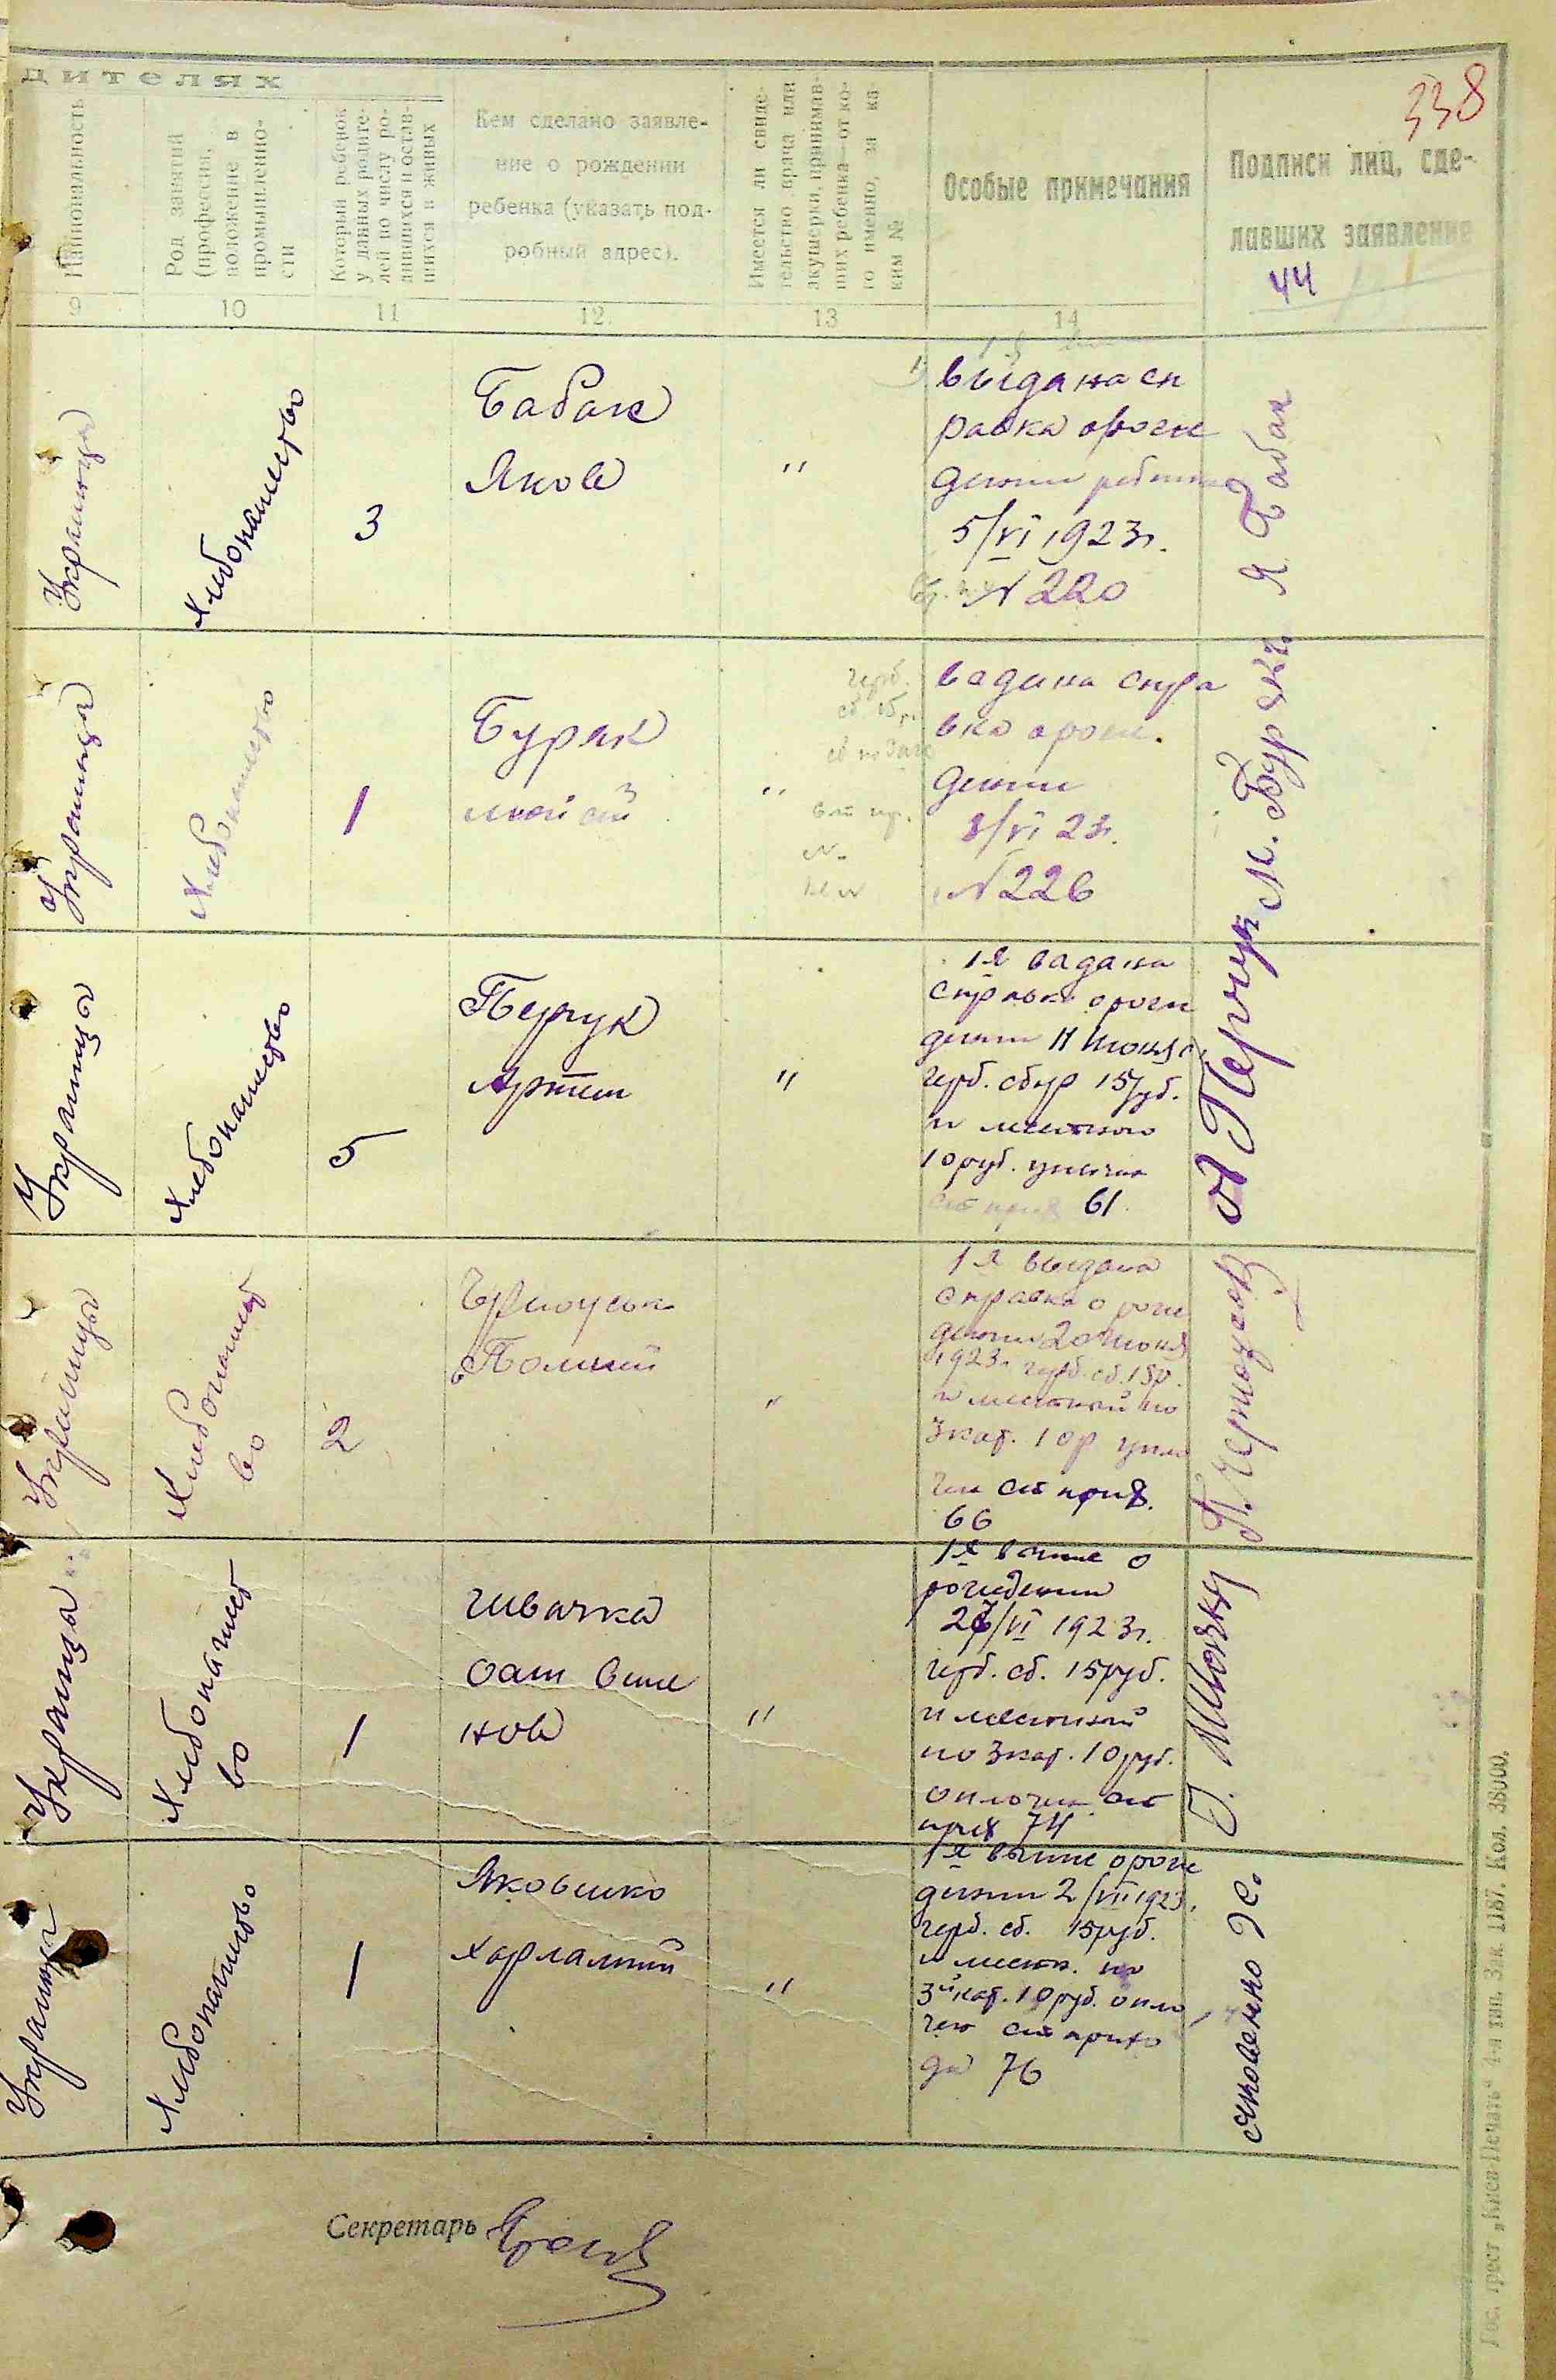 дителях
338
Национальность
Род занятий
(профессия,
положение в
промышленно-
сти
Который ребенок
у данных родите-
лей по числу ро-
дившихся и остав-
шихся в живых
Кем сделано заявле-
ние о рождении
ребенка (указать под-
робный адрес).
Имеется ли свиде-
тельство врача или
акушерки, принимав-
ших ребенка—от ко-
го именно, за ка-
ким №
Особые примечания
Подписи лиц, сде-
лавших заявление
44
9
10
11
12.
13
14
Украинцы
Хлебопашество
3
Бабак
Яков
"
выдана сп
равка о рож
дении
5/VI 1923г.
N 220
Я Бабак
Украинцы
Хлебопашество
1
Буряк
Моисей
"
герб.
вадана спра
вка о рож.
дении
8/VI 23г.
N 226
М. Буряк
Украинцы
Хлебопашество
5
Перчук
Артем
"
1-я вадана
справка о рож
дении 11 июня
герб. сбир 15руб.
и местного
10 руб. уплачен
61.
А Перчук
Украинцы
Хлебопашест
во
2
"
1 я выдана
справка о рож
дении 20 июня
1923г герб. сб. 15р.
и местный по
3 кат. 10р упла
чен ст прих.
66
П. Черноусов
Украинцы
Хлебопашест
во
1
"
1 я
рождении
/VI 1923г.
герб. сб. 15руб.
и местный
по 3 кат. 10руб.
оплочен ст
прих 74
Украинцы
Хлебопашество
1
Яковенко
Харлампий
"
1 я о рож
дении 2/VII 1923.
герб. сб. 15руб.
и местн. по
3й кат. 10руб. опло
чен ст прихо
да 76
Яковенко Х.
Секретарь
Гос. трест „Киев-Печать" 4-я тип. Зак. 1187. Кол. 38000.